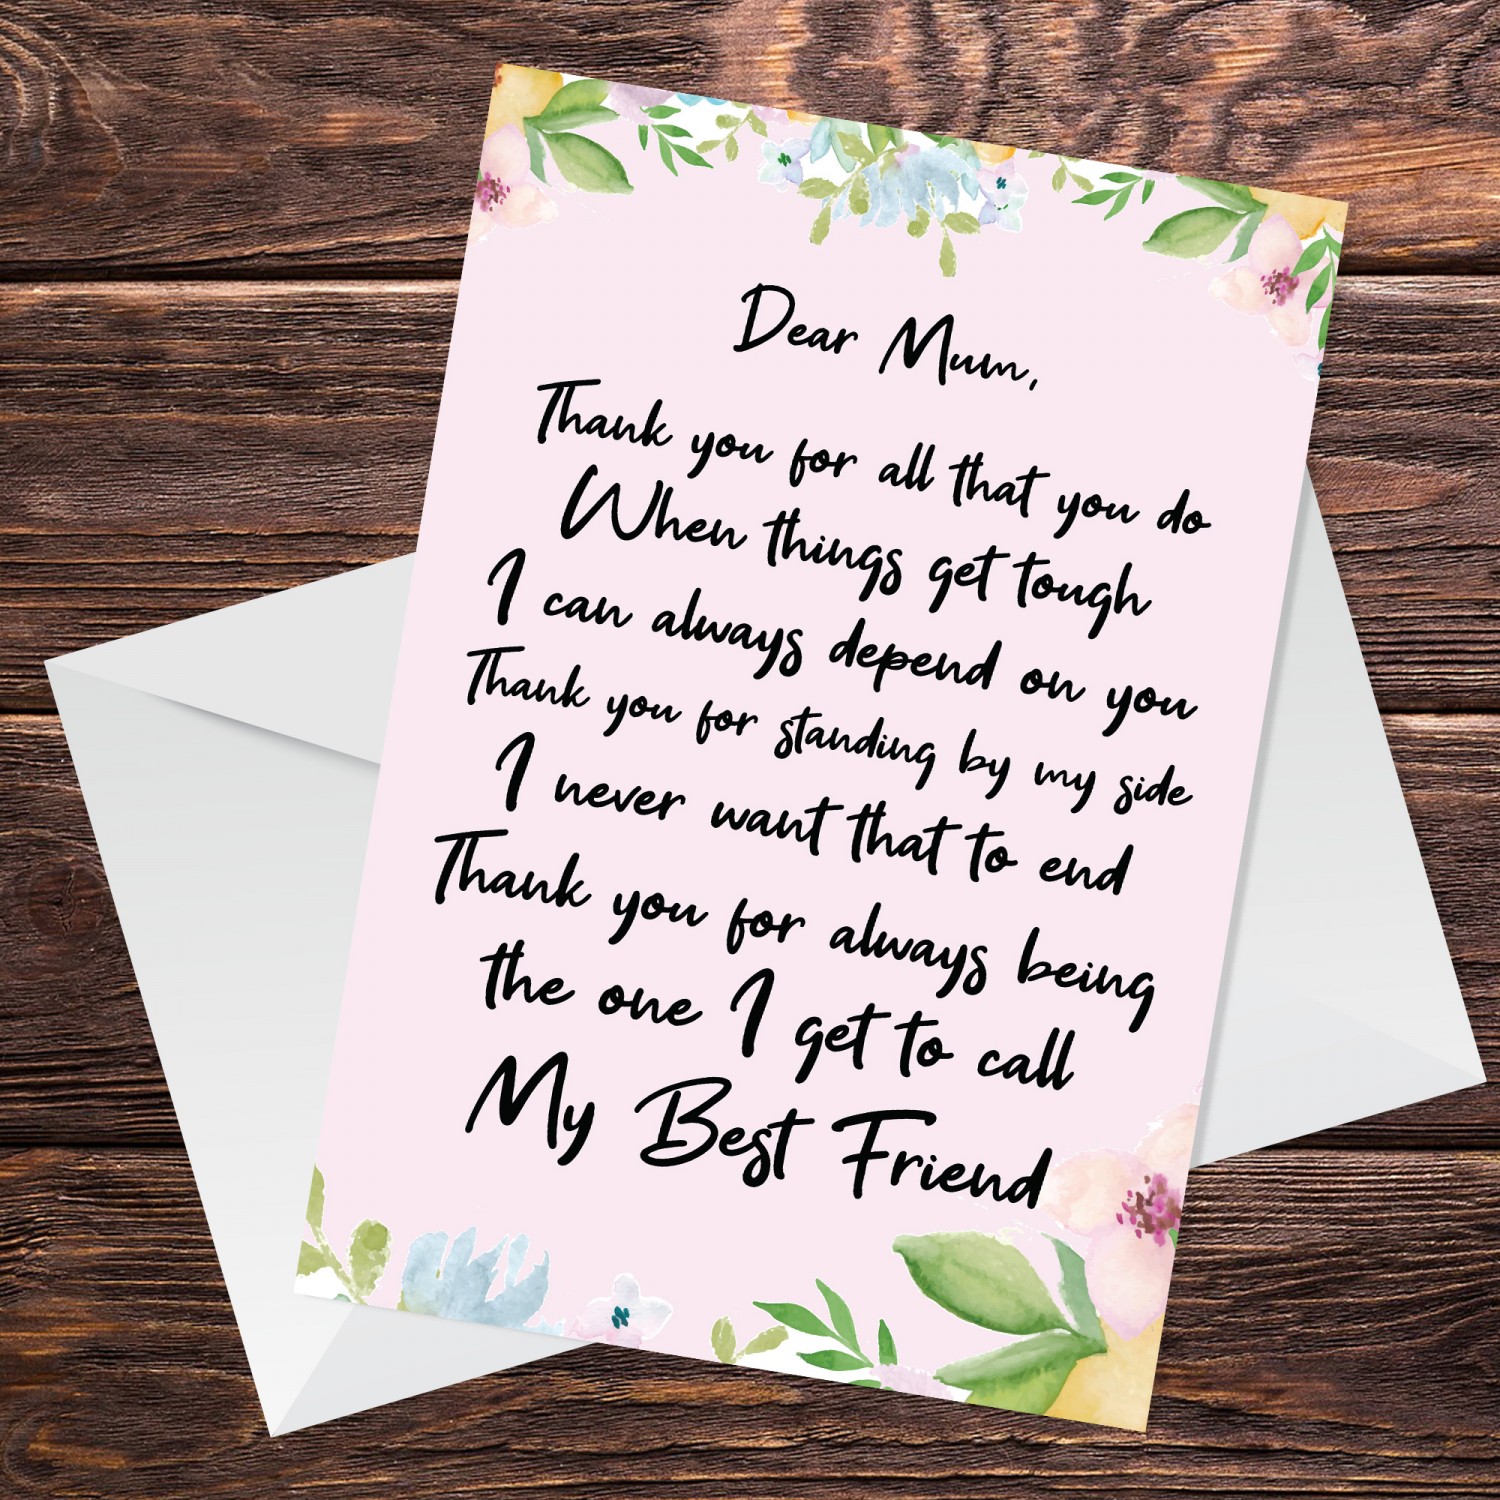 Dear Mum,
Thank you for all that you do
When things get tough
I can always depend on you
Thank you for standing by my side
I never want that to end
Thank you for always being
the one I get to call
My Best Friend